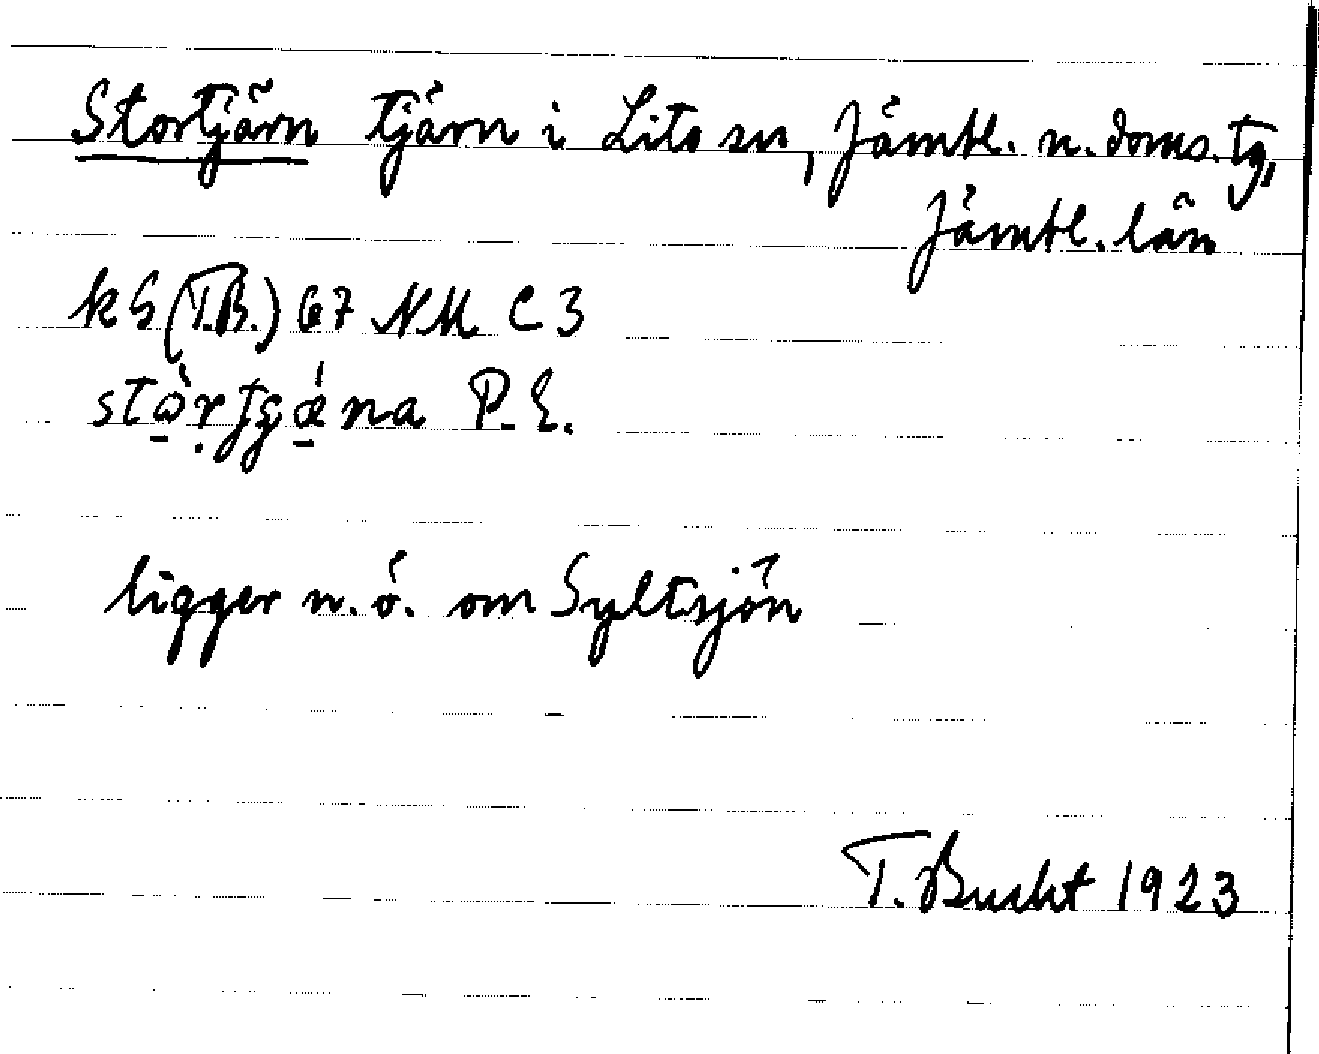 Stortjärn tjärn i Lits sn, Jämtl. n. doms. tg,
Jämtl. län
kS (T.B.) 67 NM C 3
P. E.
ligger n. ö. om Syltsjön
T. Bucht 1923